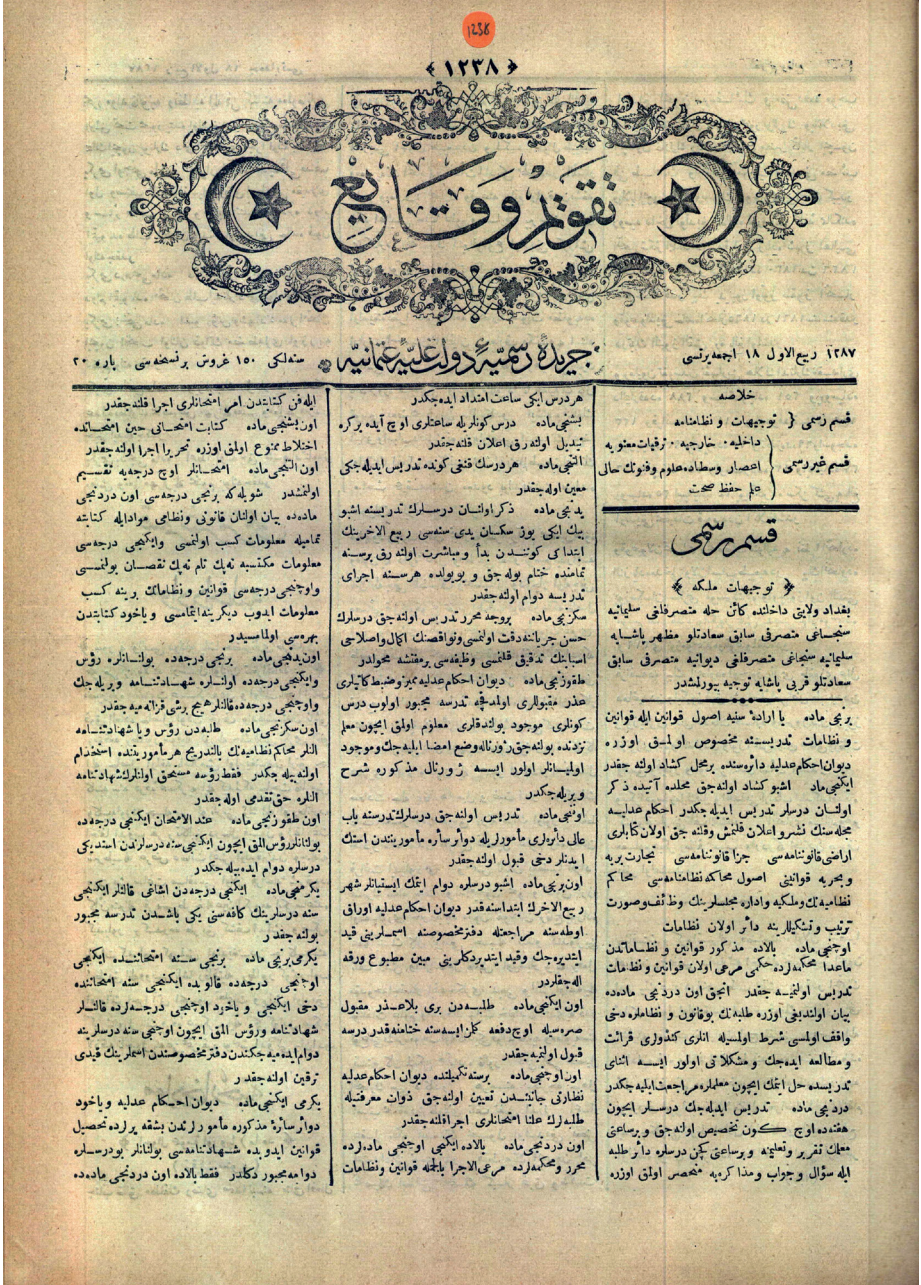 1238
﴿ ١٢٣٨ ﴾
تقويم وقايع
١٢٨٧ ربيع الاول ١٨ جمعه ايرتسى
جريدۀ رسميۀ دولت عليۀ عثمانيه
سنه لكى ١٥٠ غروش برنسخه سى پاره ٢٠
خلاصه
قسم رسمى { توجيهات و نظامنامه
داخليه . خارجيه . ترقيات معنويه
قسم غير رسمى { اعصار وسطاده علوم وفنونك حالى
علم حفظ صحت
قسم رسمى
﴿ توجيهات ملكيه ﴾
بغداد ولايتى داخلنده كائن حله متصرفلغى سليمانيه
سنجاغى متصرفى سابق سعادتلو مظهر پاشايه
سليمانيه سنجاغى متصرفلغى ديوانيه متصرفى سابق
سعادتلو قربى پاشايه توجيه بيورلمشدر
برنجى ماده با ارادۀ سنيه اصول قوانين ايله قوانين
و نظامات تدريسنه مخصوص اولمق اوزره
ديوان احكام عدليه دائره سنده برمحل كشاد اولنه جقدر
ايكنجى ماده اشبو كشاد اولنه جق محلده آتيده ذكر
اولنان درسلر تدريس ايديله جكدر احكام عدليه
مجله سنك نشر و اعلان قلنمش وقلنه جق اولان كتابلرى
اراضى قانوننامه سى جزا قانوننامه سى تجارت بريه
و بحريه قوانينى اصول محاكمه نظامنامه سى محاكم
نظاميه نك وملكيه واداره مجلسلرينك وظائف وصورت
ترتيب وتشكيللرينه دائر اولان نظامات
اوچنجى ماده بالاده مذكور قوانين و نظاماتدن
ماعدا محكمه لرده حكمى مرعى اولان قوانين و نظامات
تدريس اولنميه جقدر انجق اون دردنجى ماده ده
بيان اولنديغى اوزره طلبه نك بوقانون و نظاملره دخى
واقف اولمسى شرط اولمسيله انلرى كندولرى قرائت
و مطالعه ايده جك و مشكلاتى اولور ايسه اثناى
تدريسده حل ايتمك ايچون معلملره مراجعت ايليه جكدر
دردنجى ماده تدريس ايديله جك درسلر ايچون
هفته ده اوچ كون تخصيص اولنه جق و برساعتى
معلمك تقرير وتعليمنه و برساعتى كچن درسلره دائر طلبه
ايله سؤال و جواب ومذاكره يه منحصر اولمق اوزره
هر درس ايكى ساعت امتداد ايده جكدر
بشنجى ماده درس كونلريله ساعتلرى اوچ آيده بركره
تبديل اولنه رق اعلان قلنه جقدر
التنجى ماده هر درسك قنغى كونده تدريس ايديله جكى
معين اوله جقدر
يدنجى ماده ذكر اولنان درسلرك تدريسنه اشبو
بيك ايكى يوز سكسان يدى سنه سى ربيع الاخرينك
ابتداى كونندن بدأ و مباشرت اولنه رق برسنه
تمامنده ختام بوله جق و بويولده هر سنه اجراى
تدريسه دوام اولنه جقدر
سكزنجى ماده بروجه محرر تدريس اولنه جق درسلرك
حسن جرياننه دقت اولنمسى ونواقصنك اكمال واصلاحى
اسبابنك تدقيق قلنمسى وظيفه سى برمفتشه محولدر
طقوزنجى ماده ديوان احكام عدليه مميز وضبط كاتبلرى
عذر مقبوللرى اولمدقجه تدرسه مجبور اولوب درس
كونلرى موجود بولندقلرى معلوم اولمق ايچون معلم
نزدنده بولنه جق ژورناله وضع امضا ايليه جك وموجود
اوليانلر اولور ايسه ژورنال مذكوره شرح
ويريله جكدر
اونجى ماده تدريس اولنه جق درسلرك تدرسنه باب
عالى دائره لرى مأمورلريله دوائر سائره مأموريتندن استك
ايدنلر دخى قبول اولنه جقدر
اون برنجى ماده اشبو درسلره دوام ايتمك ايستيانلر شهر
ربيع الاخرك ابتداسنه قدر ديوان احكام عدليه اوراق
اوطه سنه مراجعتله دفتر مخصوصنه اسملرينى قيد
ايتديره جك وقيد ايتديردكلرينى مبين مطبوع ورقه
اله جقلردر
اون ايكنجى ماده طلبه دن برى بلاعذر مقبول
صره سيله اوچ دفعه كلمز ايسه سنه ختامنه قدر درسه
قبول اولنميه جقدر
اون اوچنجى ماده برسنه تكميلنده ديوان احكام عدليه
نظارتى جانبندن تعيين اولنه جق ذوات معرفتيله
طلبه لرك علنا امتحانلرى اجرا قلنه جقدر
اون دردنجى ماده بالاده ايكنجى اوچنجى ماده لرده
محرر ومحكمه لرده مرعى الاجرا بالجمله قوانين و نظامات
ايله فن كتابتدن امر امتحانلرى اجرا قلنه جقدر
اون بشنجى ماده كتابت امتحانى حين امتحانده
اختلاط ممنوع اولمق اوزره تحريرا اجرا اولنه جقدر
اون التنجى ماده امتحانلر اوچ درجه يه تقسيم
اولنمشدر شويله كه برنجى درجه سى اون دردنجى
ماده ده بيان اولنان قانونى ونظامى مواد ايله كتابته
تماميله معلومات كسب اولنمسى وايكنجى درجه سى
معلومات مكتسبه نك تام نه يك نقصان بولنمسى
واوچنجى درجه سى قوانين و نظاماتك برينه كسب
معلومات ايدوب ديكرينه ايتمامسى وياخود كتابتدن
بهره سى اولمامسيدر
اون يدنجى ماده برنجى درجه ده بولنانلره رؤس
وايكنجى درجه ده اولنلره شهادتنامه ويريله جك
واوچنجى درجه ده قالنلر هيچ برشى قزانه ميه جقدر
اون سكزنجى ماده طلبه دن رؤس ويا شهادتنامه
النلر محاكم نظاميه نك بالتدريج هر مأموريتنده استخدام
اولنه بيله جكدر فقط رؤسه مستحق اولنلرك شهادتنامه
النلره حق تقدمى اوله جقدر
اون طقوزنجى ماده عند الامتحان ايكنجى درجه ده
بولنانلر رؤس المق ايچون ايكنجى سنه درسلرندن استديكى
درسلره دوام ايده بيله جكدر
يكرمنجى ماده ايكنجى درجه دن اشاغى قالنلر ايكنجى
سنه درسلرينك كافه سنى يكى باشدن تدرسه مجبور
بولنه جقدر
يكرمى برنجى ماده برنجى سنه امتحاننده ايكنجى
اوچنجى درجه ده قالوبده ايكنجى سنه امتحاننده
دخى ايكنجى و ياخود اوچنجى درجه لرده قالنلر
شهادتنامه ورؤس المق ايچون اوچنجى سنه درسلرينه
دوام ايده ميه جكندن دفتر مخصوصندن اسملرينك قيدى
ترقين اولنه جقدر
يكرمى ايكنجى ماده ديوان احكام عدليه و ياخود
دوائر سائرۀ مذكوره مأمورلرندن بشقه يرلرده تحصيل
قوانين ايدوبده شهادتنامه سى بولنانلر بودرسلره
دوامه مجبور دكلدر فقط بالاده اون دردنجى ماده ده